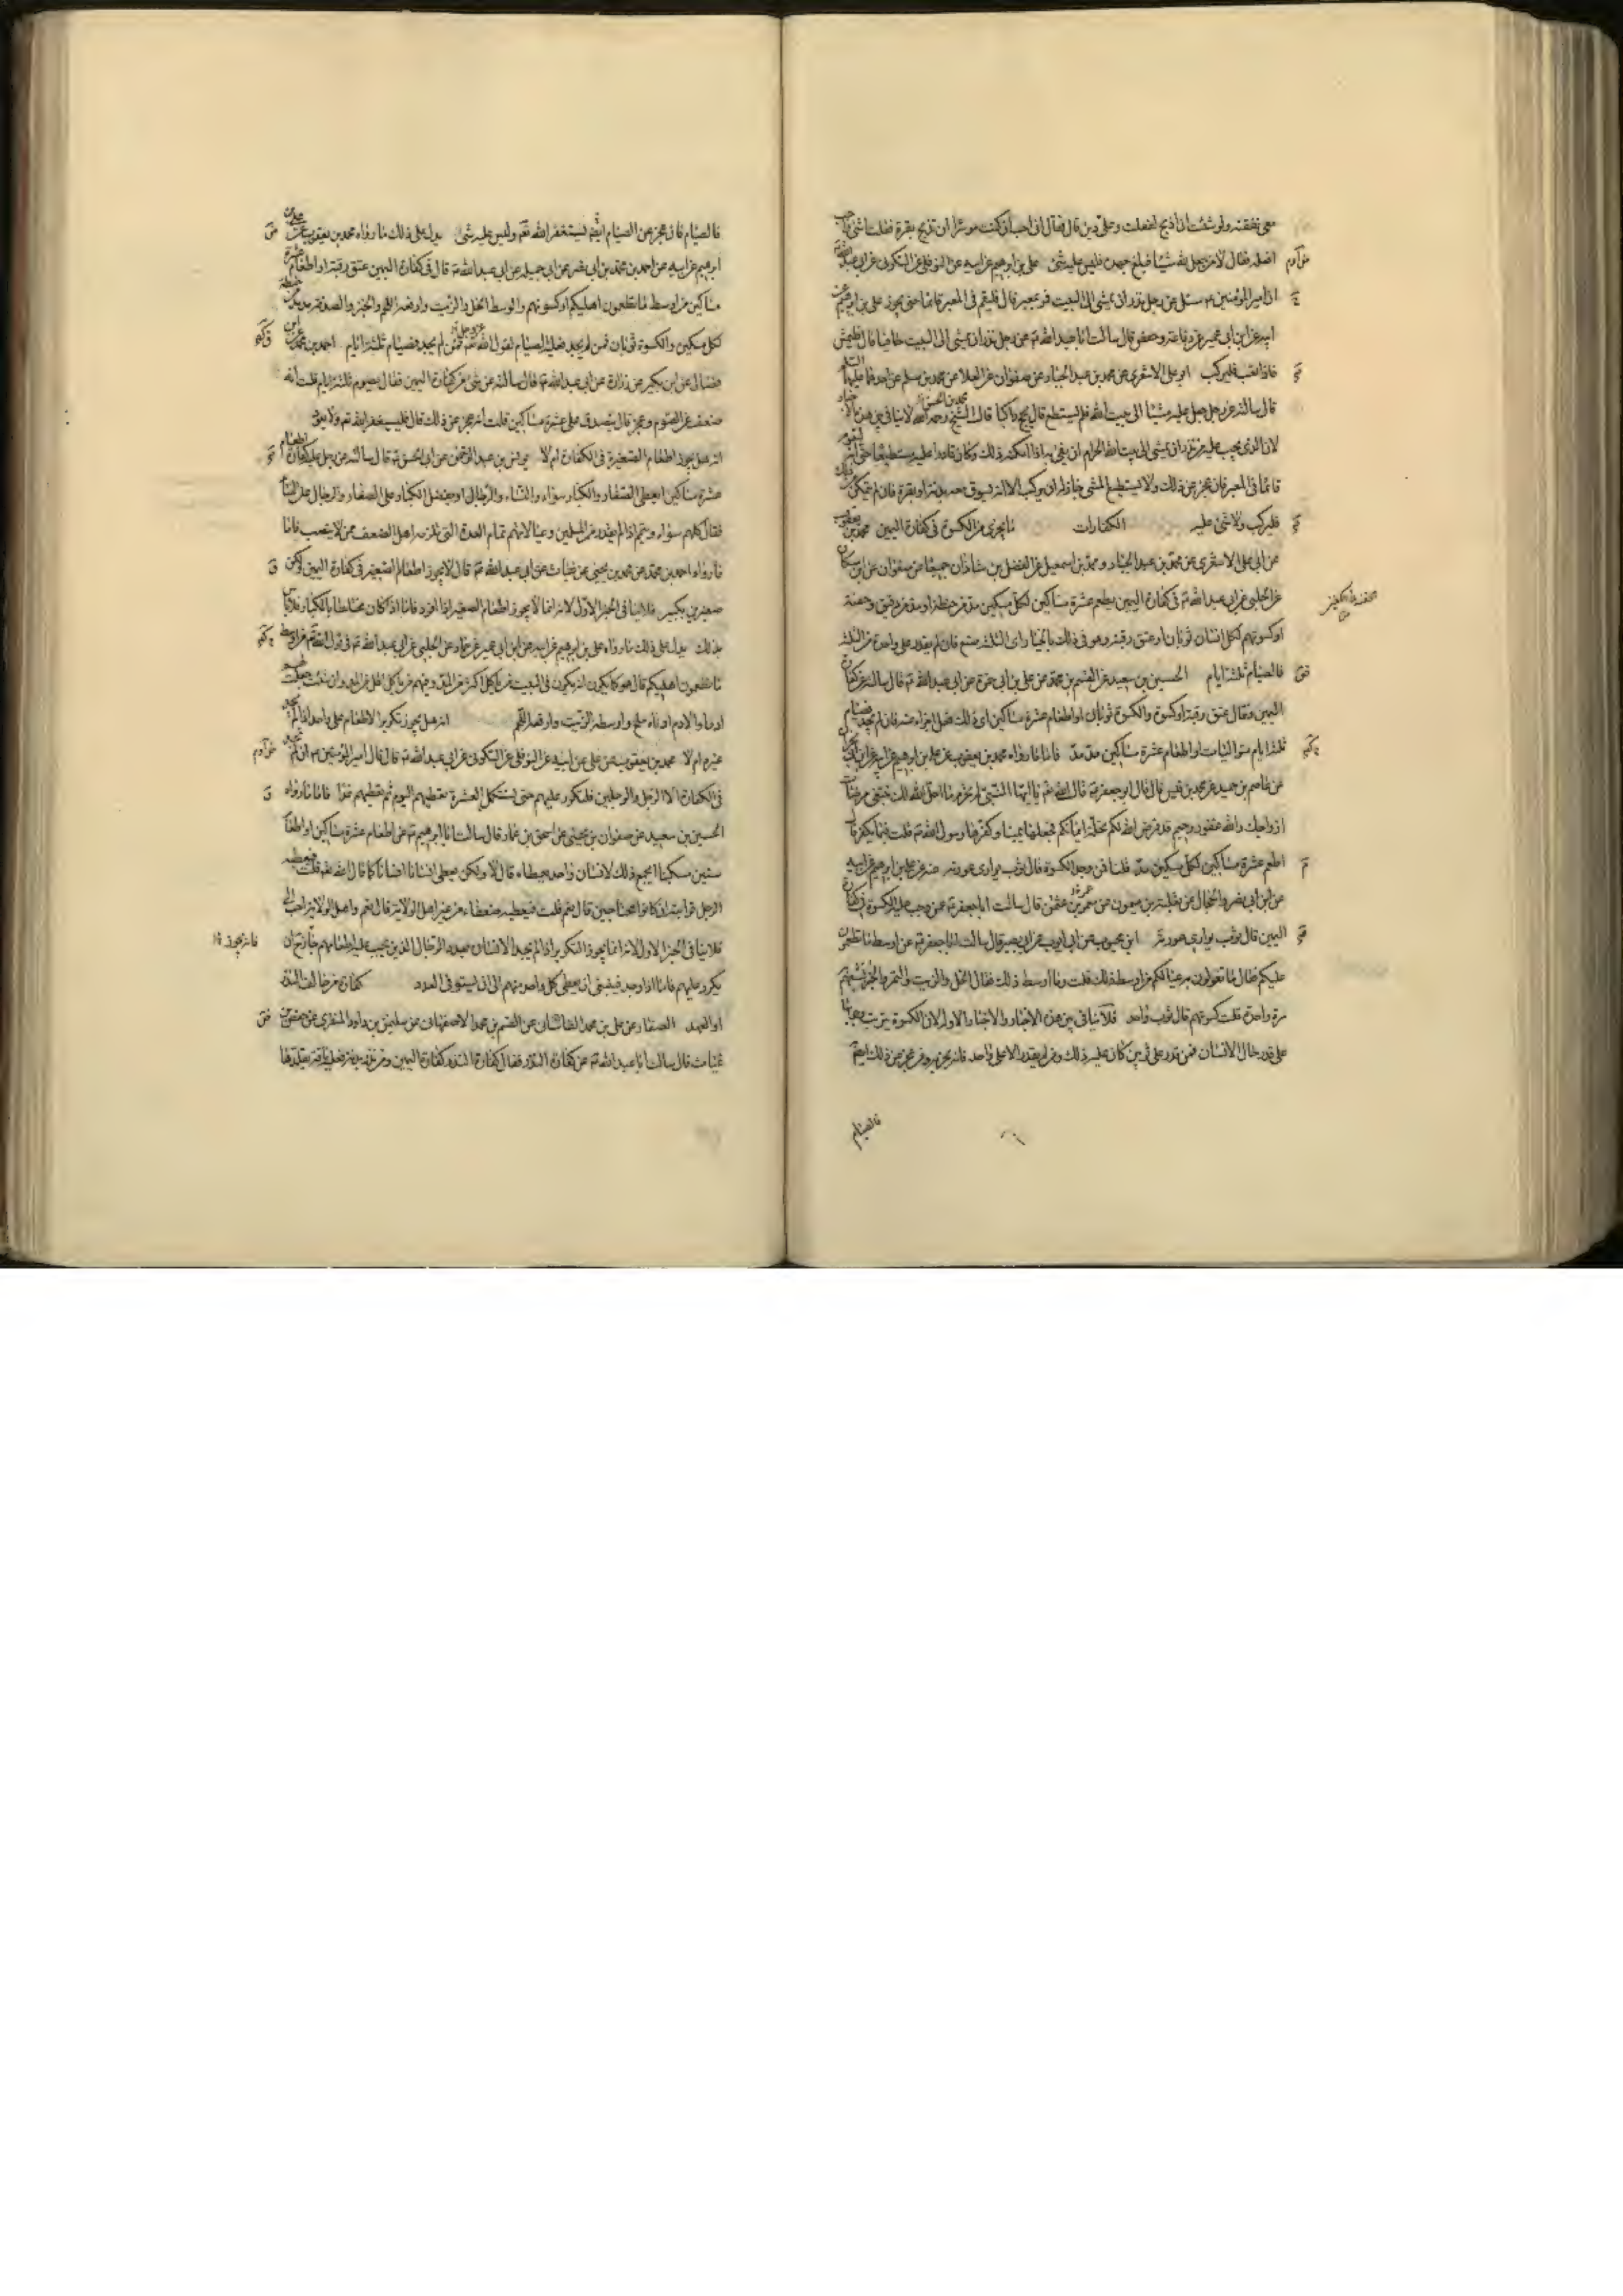 معى نفقته ولو شئت ان اذبح لفعلت وعلى دين قال فقال انى احب ان كنت موسرا ان تذبح بقرة فقلت اشئ واجب
افعله فقال لا من جعل لله شيئا فبلغ جهده فليس عليه شئ على بن ابرهيم عن ابيه عن النوفلى عن السكونى عن ابى عبد الله
ان امير المؤمنين سئل عن رجل نذر ان يمشى الى البيت فمر بمعبر قال فليقم فى المعبر قائما حتى يجوز على بن ابرهيم عن
ابيه عن ابن ابى عمير عن رفاعة وحفص قال سالت ابا عبد الله عن رجل نذر ان يمشى الى البيت حافيا قال فليمش
فاذا تعب فليركب ابو على الاشعرى عن محمد بن عبد الجبار عن صفوان عن العلا عن محمد بن مسلم عن احدهما عليهما السلام
قال سالته عن رجل جعل عليه مشيا الى بيت الله فلم يستطع قال يحج راكبا قال الشيخ رحمه الله لا تنافى بين هذه الاخبار
لان الذى يجب على من نذر ان يمشى الى بيت الله الحرام ان يفى به اذا امكنه ذلك وكان قادرا عليه مستطيعا حتى انه ليقوم
قائما فى المعبر فان عجز عن ذلك ولا يستطيع المشى جاز له ان يركب الا انه ليسوق معه بدنة او بقرة فان لم يتمكن من ذلك
فليركب ولا شئ عليه الكفارات ما يجزى من الكسوة فى كفارة اليمين محمد بن يعقوب
عن ابى على الاشعرى عن محمد بن عبد الجبار ومحمد بن اسمعيل عن الفضل بن شاذان جميعا عن صفوان عن ابن مسكان
عن الحلبى عن ابى عبد الله فى كفارة اليمين يطعم عشرة مساكين لكل مسكين مد من حنطة او مد من دقيق وحفنة
او كسوتهم لكل انسان ثوبان او عتق رقبة وهو فى ذلك بالخيار اى الثلثة صنع فان لم يقدر على واحدة من الثلث
فالصيام ثلثة ايام الحسين بن سعيد عن القسم بن محمد عن على بن ابى حمزة عن ابى عبد الله قال سالته عن كفارة
اليمين فقال عتق رقبة او كسوة والكسوة ثوبان او اطعام عشرة مساكين اى ذلك فعل اجزاء عنه فان لم يجد فصيام
ثلثة ايام متواليات او اطعام عشرة مساكين مدا مدا فاما ما رواه محمد بن يعقوب عن على بن ابرهيم عن ابيه عن ابن ابى نجران
عن عاصم بن حميد عن محمد بن قيس قال قال ابو جعفر قال الله يا ايها النبى لم تحرم ما احل الله لك تبتغى مرضات
ازواجك والله غفور رحيم قد فرض الله لكم تحلة ايمانكم فجعلها يمينا وكفرها رسول الله قلت فبما كفر قال
اطعم عشرة مساكين لكل مسكين مد قلنا فمن وجد الكسوة قال ثوب يوارى عورته عنه عن على بن ابرهيم عن ابيه
عن ابن ابى نصر والحجال عن ثعلبة بن ميمون عن معمر بن عثمن قال سالت ابا جعفر عمن وجب عليه الكسوة فى كفارة
اليمين قال ثوب يوارى عورته ابن محبوب عن ابى ايوب عن ابى بصير قال سالت ابا جعفر عن اوسط ما تطعمون
عليكم فقال ما تقولون به عيالكم من اوسط ذلك قلت وما اوسط ذلك فقال الخل والزيت والتمر والخبز تشبعهم
مرة واحدة قلت كسوتهم قال ثوب واحد فلا تنافى بين هذه الاخبار والاخبار الاولة لان الكسوة يترتب وجوبها
على قدر حال الانسان فمن قدر على ثوبين كان عليه ذلك ومن لم يقدر الا على واحد فانه يجزيه ومن عجز عن ذلك ايضا
فالصيام
فالصيام فان عجز عن الصيام ايضا فليستغفر الله تعم وليس عليه شئ يدل على ذلك ما رواه محمد بن يعقوب عن على بن
ابرهيم عن ابيه عن احمد بن محمد بن ابى نصر عن ابى جميلة عن ابى عبد الله قال فى كفارة اليمين عتق رقبة او اطعام عشرة
مساكين من اوسط ما تطعمون اهليكم او كسوتهم والوسط الخل والزيت وارفعه اللحم والخبز والصدقة مد من حنطة
لكل مسكين والكسوة ثوبان فمن لم يجد فعليه الصيام لقول الله عز وجل فمن لم يجد فصيام ثلثة ايام احمد بن محمد عن ابن
فضال عن ابن بكير عن زرارة عن ابى عبد الله قال سالته عن شئ من كفارة اليمين فقال يصوم ثلثة ايام قلت انه
ضعف عن الصوم وعجز قال يتصدق على عشرة مساكين قلت انه عجز عن ذلك قال فليستغفر الله ولا يعد
انه هل يجوز اطعام الصغيرة فى الكفارة ام لا يونس بن عبد الرحمن عن ابى الحسن قال سالته عن رجل عليه كفارة اطعام
عشرة مساكين ايعطى الصغار والكبار سواء والنساء والرجال او يفضل الكبار على الصغار والرجال على النسا
فقال كلهم سواء ويتمم اذا لم يقدر من المسلمين وعيالاتهم تمام العدة التى تلزمه اهل الضعف ممن لا ينصب فاما
ما رواه احمد بن محمد عن محمد بن يحيى عن غياث عن ابى عبد الله قال لا يجوز اطعام الصغير فى كفارة اليمين ولكن
صغيرين بكبير فلا ينافى الخبر الاول لانه انما لا يجوز اطعام الصغير اذا افرد فاما اذا كان مختلطا بالكبار فلا باس
بذلك يدل على ذلك ما رواه على بن ابرهيم عن ابيه عن ابن ابى عمير عن حماد عن الحلبى عن ابى عبد الله فى قول الله من اوسط
ما تطعمون اهليكم قال هو كما يكون انه يكون فى البيت من ياكل اكثر من المد ومنهم من ياكل اقل من المد وان شئت جعلت لهم
ادما والادم ادناه ملح واوسطه الزيت وارفعه اللحم انه هل يجوز تكرير الاطعام على واحد اذا لم يجد
غيره ام لا محمد بن يعقوب عن على عن ابيه عن النوفلى عن السكونى عن ابى عبد الله قال قال امير المؤمنين ان لم يجد
فى الكفارة الا الرجل والرجلين فليكرر عليهم حتى يستكمل العشرة يعطيهم اليوم ثم يعطيهم غدا فاما ما رواه
الحسين بن سعيد عن صفوان بن يحيى عن اسحق بن عمار قال سالت ابا ابرهيم عن اطعام عشرة مساكين او اطعام
ستين مسكينا ايجمع ذلك لانسان واحد يعطاه قال لا ولكن يعطى انسانا انسانا كما قال الله قلت فيعطيه
الرجل قرابته ان كانوا محتاجين قال نعم قلت فيعطيه ضعفاء من غير اهل الولاية قال نعم واهل الولاية احب الى
فلا ينافى الخبر الاول لانه انما يجوز التكرير اذا لم يجد الانسان بعدد الرجال الذين يجب عليه اطعامهم جاز له ان
يكرر عليهم فاما اذا وجد فينبغى ان يعطى كل واحد منهم الى ان يستوفى العدد كفارة من خالف النذر
او العهد الصفار عن على بن محمد القاشانى عن القسم بن محمد الاصفهانى عن سليمن بن داود المنقرى عن حفص بن
غياث قال سالت ابا عبد الله عن كفارة النذر فقال كفارة النذر كفارة اليمين ومن نذر بدنة فعليه ناقة يقلدها